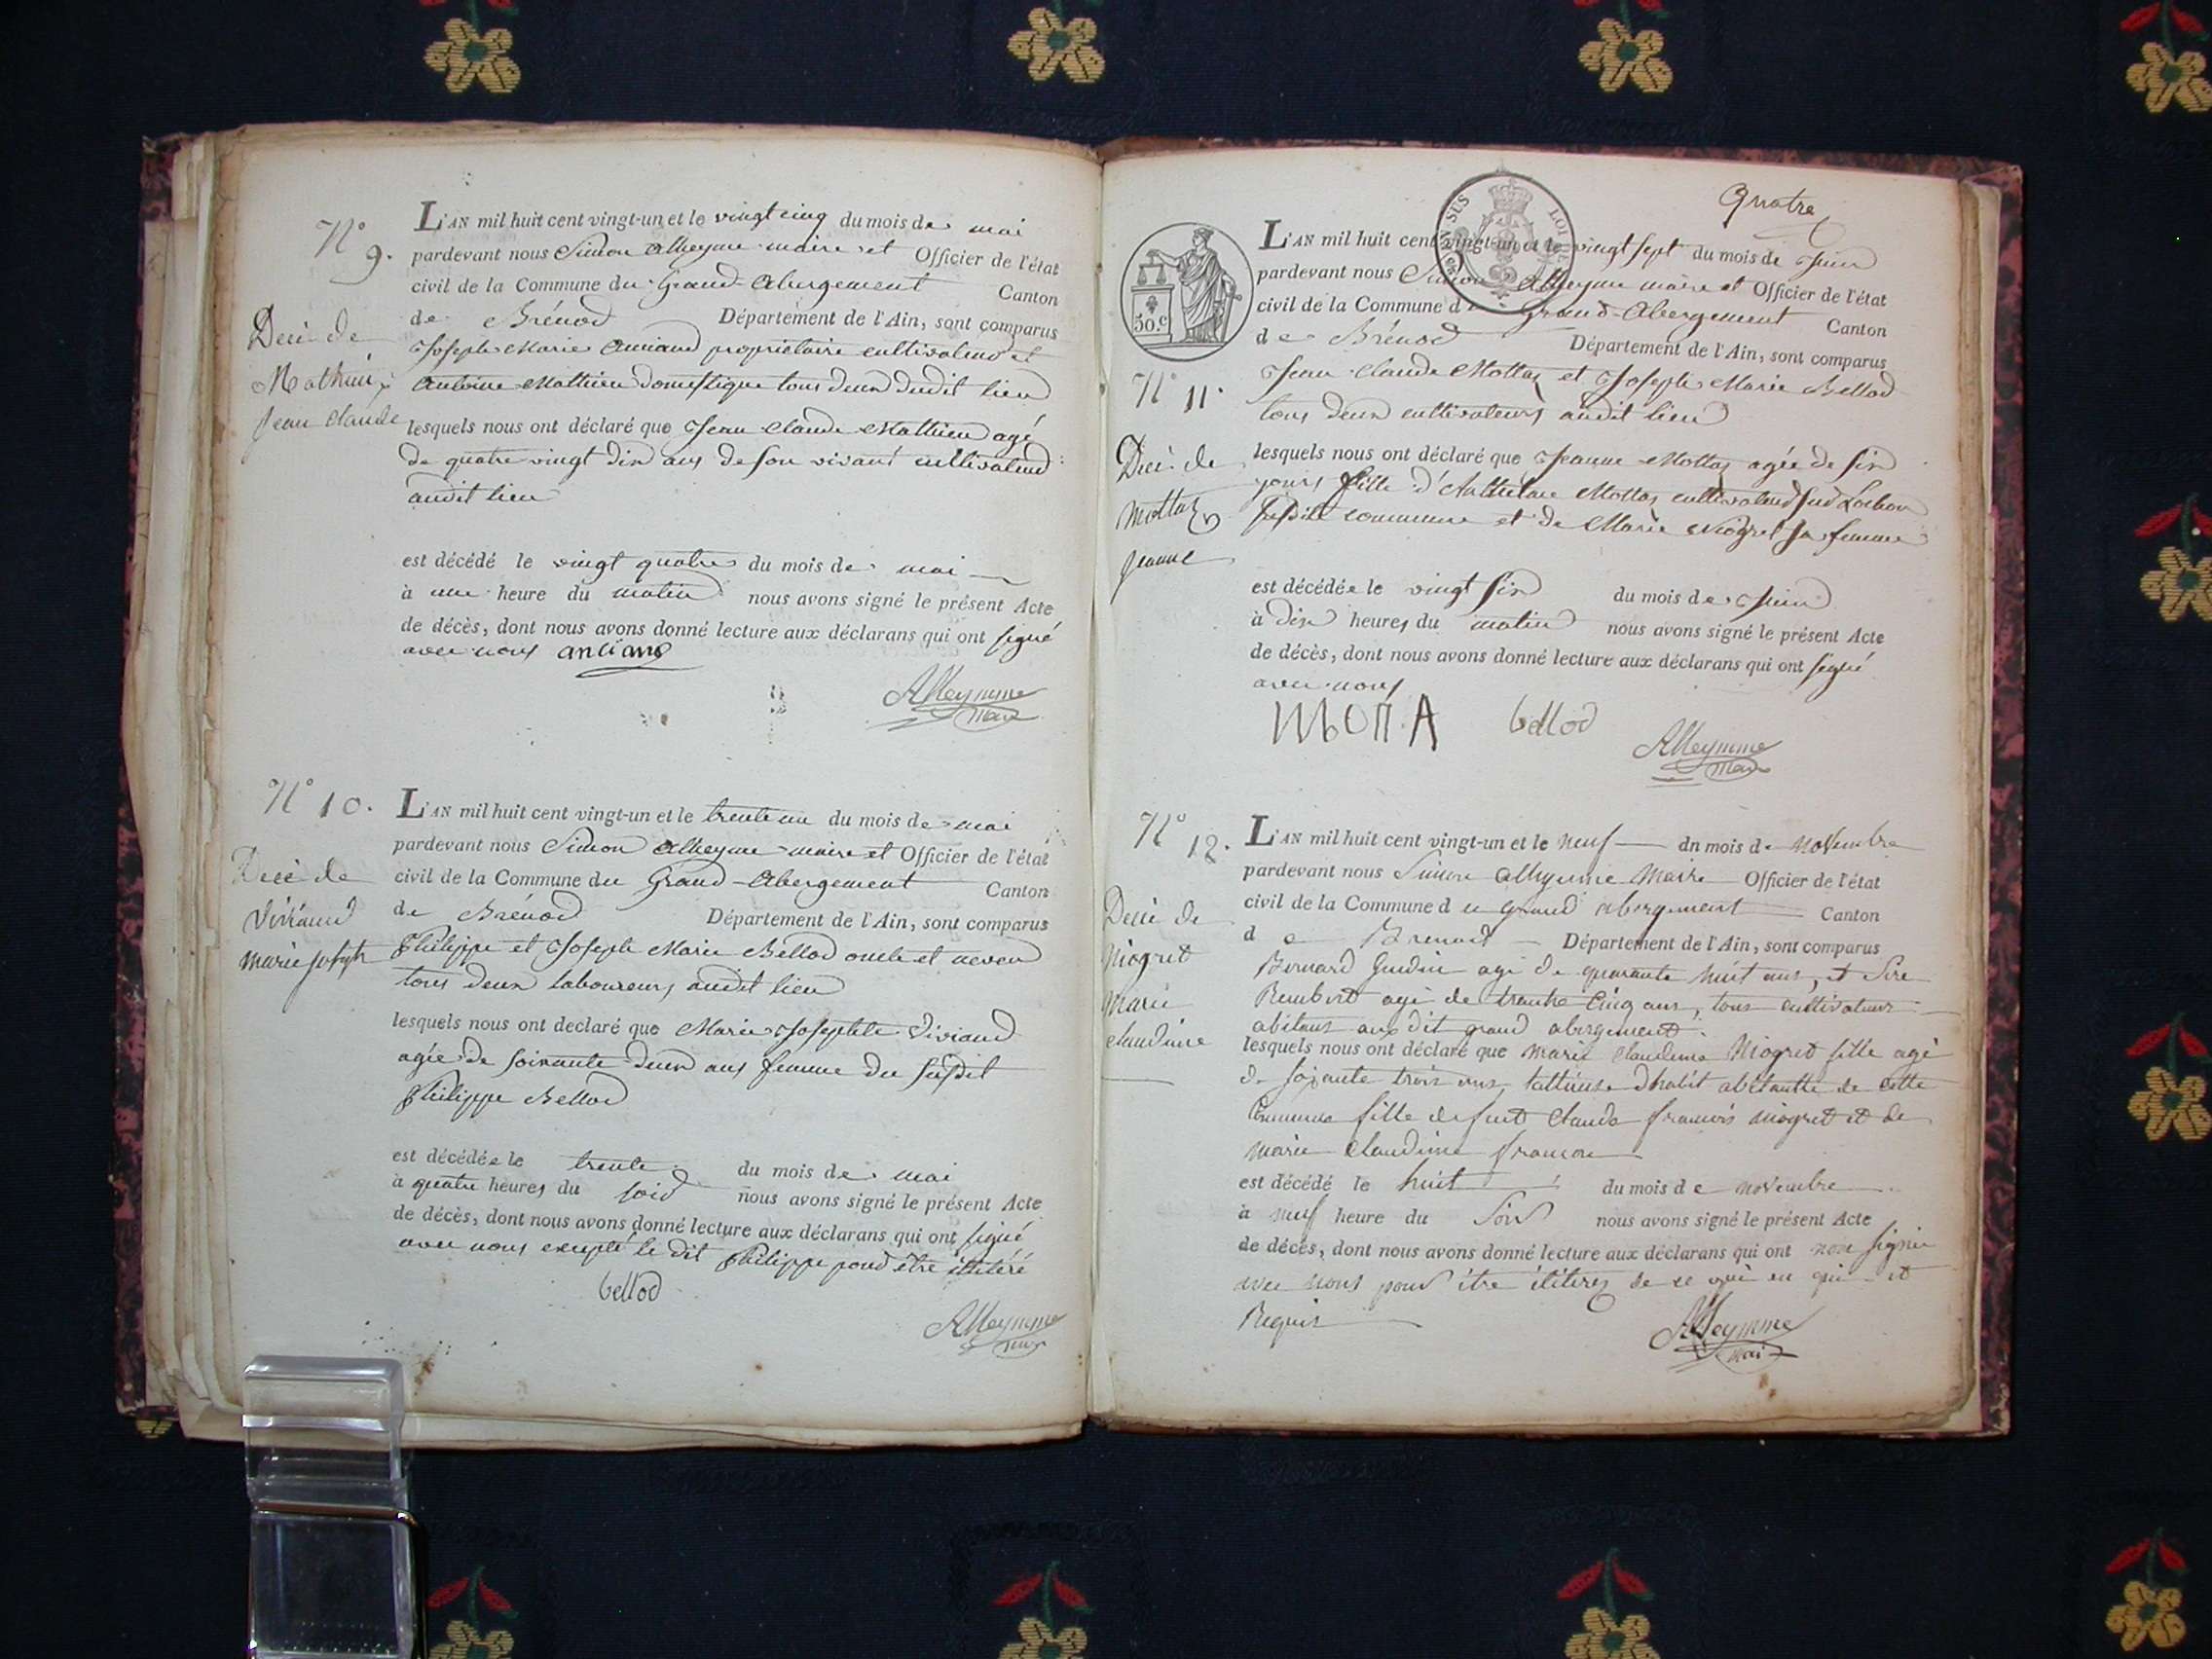 N° 9.
Décè de
Mathieu
jean claude
L'AN mil huit cent vingt-un et le vingt cinq du mois de mai
pardevant nous Simon Alleyme maire et Officier de l'état
civil de la Commune du Grand-Abergement Canton
de Brénod Département de l'Ain, sont comparus
Joseph Marie Anciand propriétaire cultivateur et
Antoine Mathieu domestique tous deux dudit lieu
lesquels nous ont déclaré que Jean Claude Mathieu agé
de quatre vingt dix ans de son vivant cultivateur
audit lieu
est décédé le vingt quatre du mois de mai
à une heure du matin nous avons signé le présent Acte
de décès, dont nous avons donné lecture aux déclarans qui ont signé
avec nous anciand
Alleymme
maire
N° 10.
Décè de
Viviand
marie joseph
L'AN mil huit cent vingt-un et le trente un du mois de mai
pardevant nous Simon Alleyme maire et Officier de l'état
civil de la Commune du Grand-Abergement Canton
de Brénod Département de l'Ain, sont comparus
Philippe et Joseph Marie Bellod oncle et neveu
tous deux laboureurs audit lieu
lesquels nous ont declaré que Marie Josephte Viviand
agée de soixante deux ans femme du susdit
Philippe Bellod
est décédée le trente du mois de mai
à quatre heures du soir nous avons signé le présent Acte
de décès, dont nous avons donné lecture aux déclarans qui ont signé
avec nous excepté le dit Philippe pour être illitéré
bellod
Alleymme
maire
Quatre
50.C
N° 11.
Décè de
Mottaz
jeanne
L'AN mil huit cent vingt-un et le vingt sept du mois de Juin
pardevant nous Simon Alleyme maire et Officier de l'état
civil de la Commune du Grand-Abergement Canton
de Brénod Département de l'Ain, sont comparus
Jean Claude Mottaz et Joseph Marie Bellod
tous deux cultivateurs audit lieu
lesquels nous ont déclaré que Jeanne Mottaz agée de six
jours fille d'Anthelme Mottaz cultivateur sur Lochon
susdite commune et de Marie Niogret sa femme
est décédée le vingt six du mois de Juin
à dix heures du matin nous avons signé le présent Acte
de décès, dont nous avons donné lecture aux déclarans qui ont signé
avec nous
bellod
Alleymme
maire
N° 12.
Décè de
Niogret
Marie
claudine
L'AN mil huit cent vingt-un et le neuf du mois de novembre
pardevant nous Simon Alleymme Maire Officier de l'état
civil de la Commune du grand abergement Canton
de Brenod Département de l'Ain, sont comparus
Bernard Gudin agé de quarante huit ans, et
Rembert agé de trante cinq ans, tous cultivateurs
abitans aux dit grand abergement.
lesquels nous ont déclaré que marie claudine Niogret fille agé
de sojxante trois ans tallieuse dhabit abitantte de cette
Commune fille defunt Claude francois niogret et de
marie Claudine francon
est décédé le huit du mois de novembre
à neuf heure du soir nous avons signé le présent Acte
de décès, dont nous avons donné lecture aux déclarans qui ont non signer
avec nous pour être éliterez de ce
Requis
Alleymme
maire